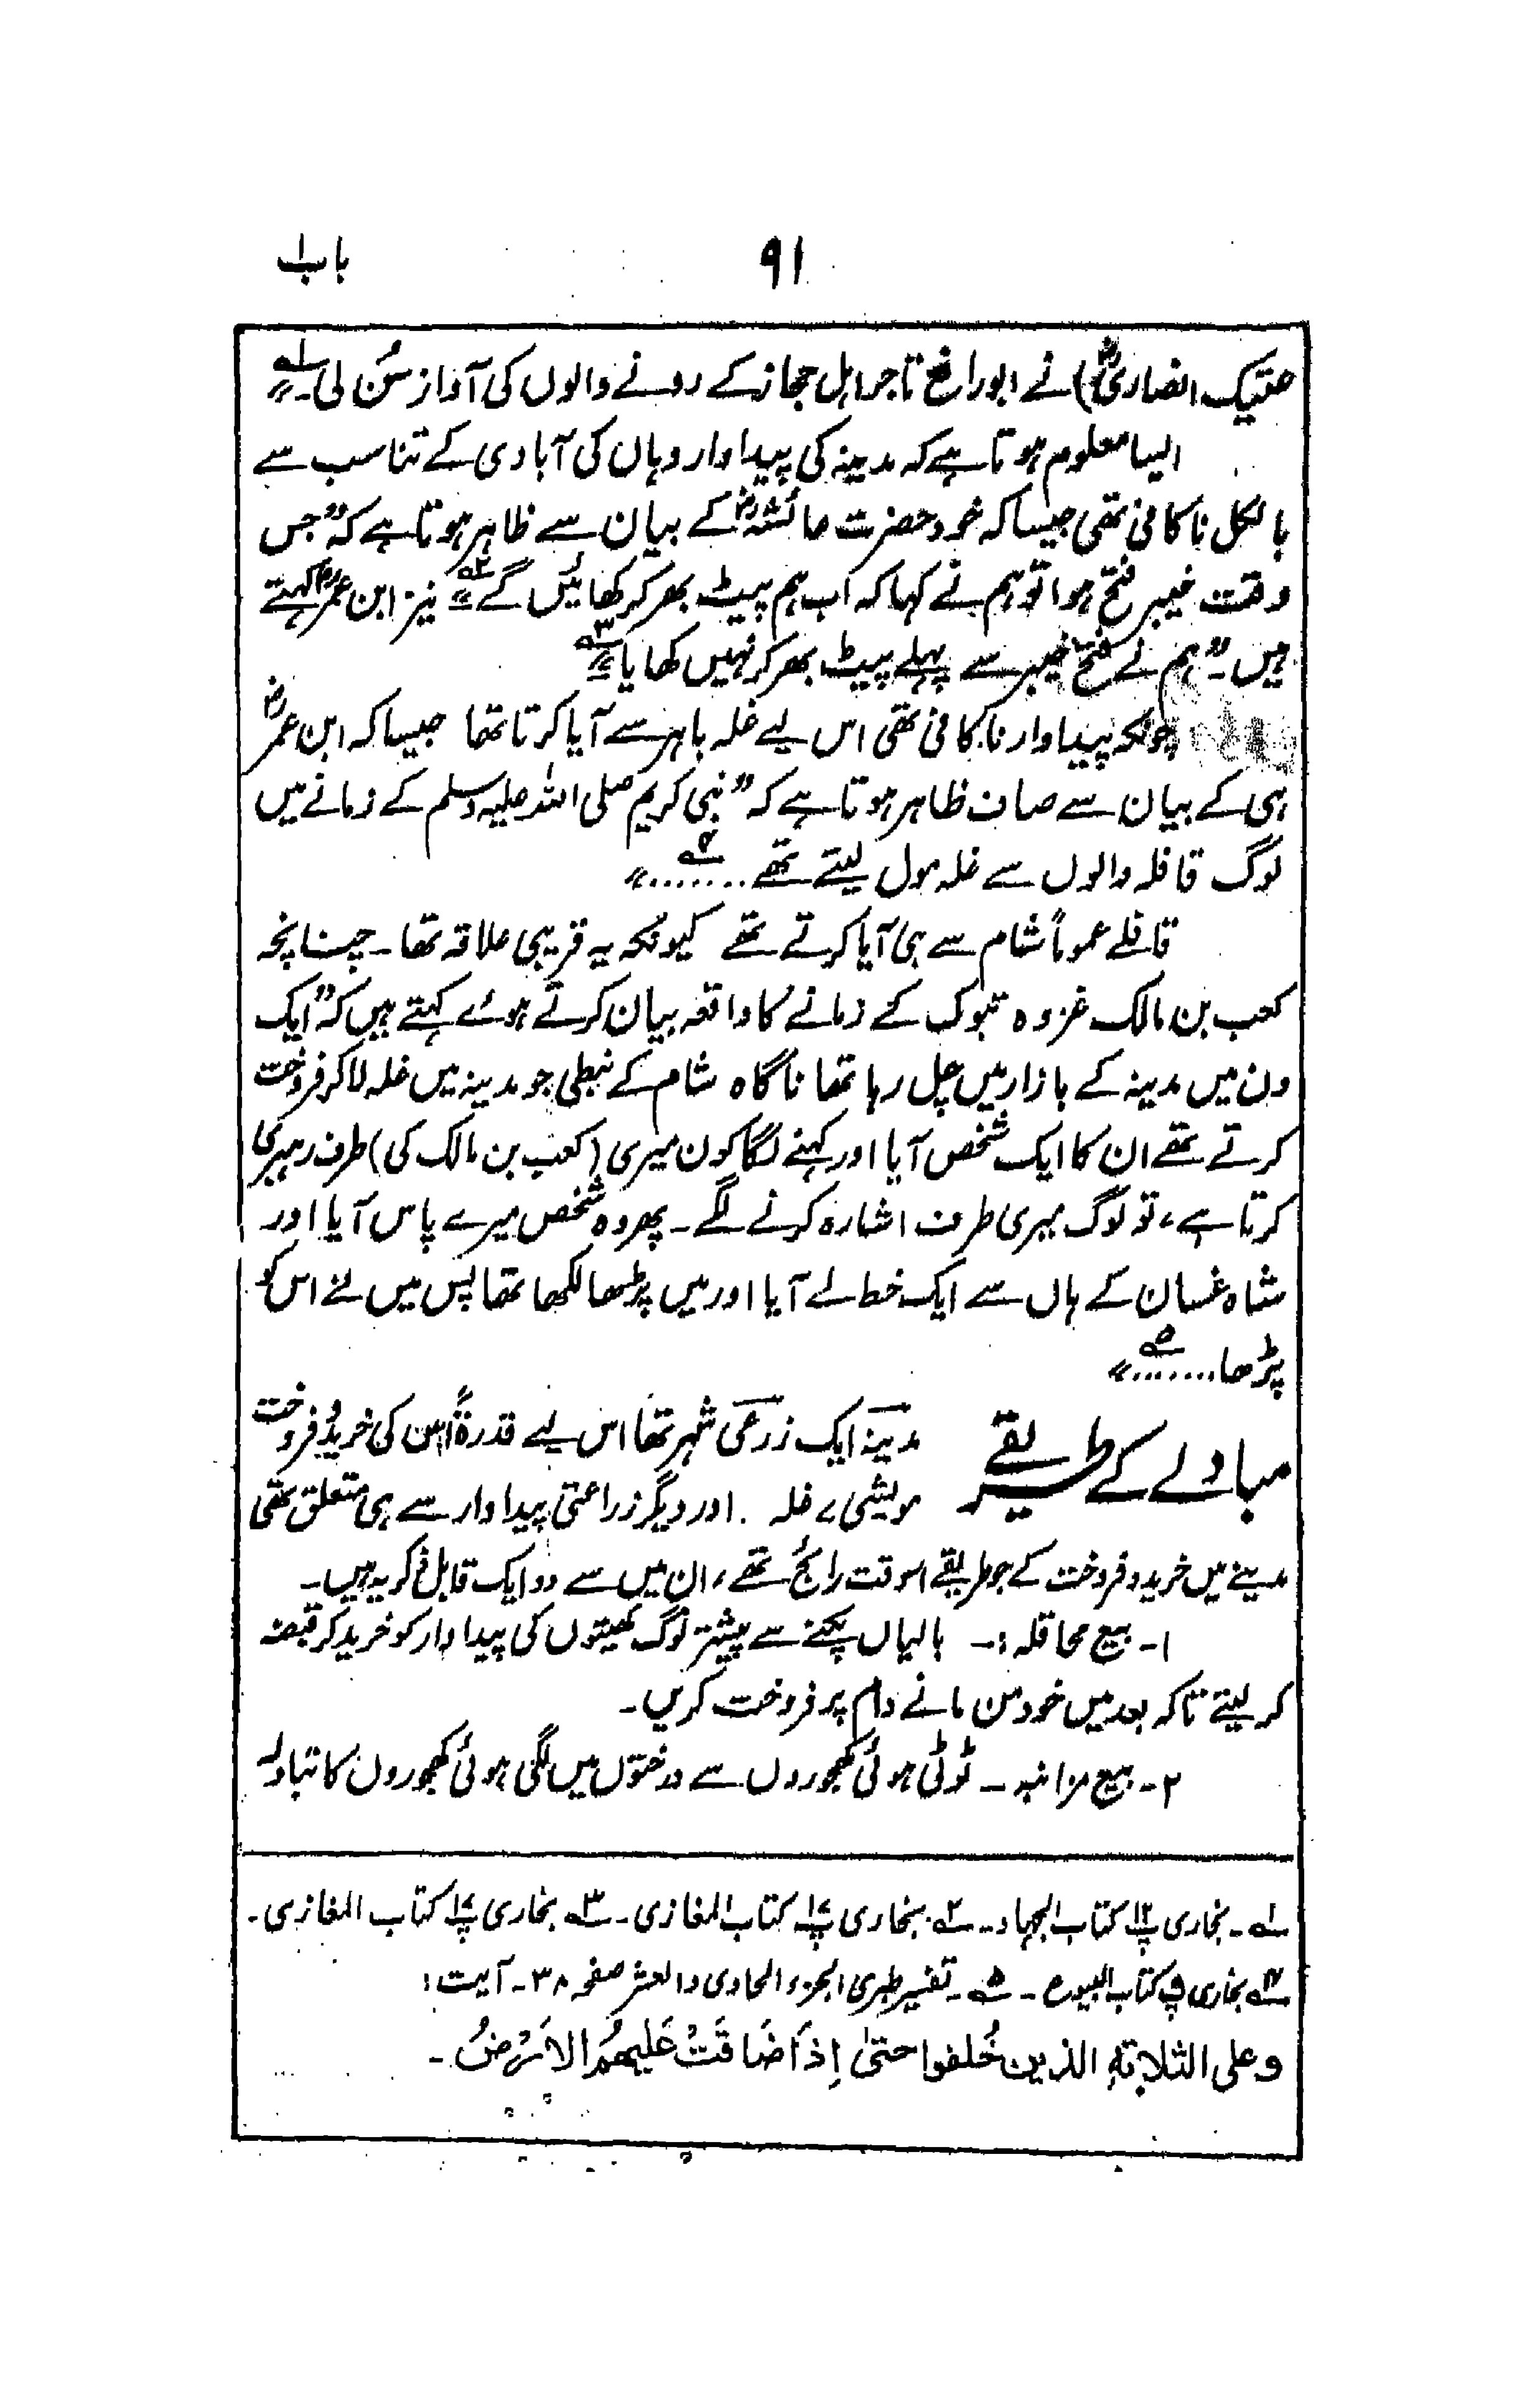 ۹۱ باب۱
عتیک انصاریؓ) نے ابورافع تاجر اہل حجاز کے رونے والوں کی آواز سُن لی۔۱؎"
ایسا معلوم ہوتا ہے کہ مدینہ کی پیداوار وہاں کی آبادی کے تناسب سے
بالکل ناکافی تھی جیسا کہ خود حضرت عائشہؓ کے بیان سے ظاہر ہوتا ہے کہ "جس
وقت خیبر فتح ہوا تو ہم نے کہا کہ اب ہم پیٹ بھر کر کھائیں گے۲؎" نیز ابن عمرؓ کہتے
ہیں۔ "ہم نے فتح خیبر سے پہلے پیٹ بھر کر نہیں کھایا۳؎"
چونکہ پیداوار ناکافی تھی اس لیے غلہ باہر سے آیا کرتا تھا جیسا کہ ابن عمرؓ
ہی کے بیان سے صاف ظاہر ہوتا ہے کہ "نبی کریم صلی اللہ علیہ وسلم کے زمانے میں
لوگ قافلہ والوں سے غلہ مول لیتے تھے........۴؎"
قافلے عموماً شام سے ہی آیا کرتے تھے کیونکہ یہ قریبی علاقہ تھا۔ چنانچہ
کعب بن مالک غزوہ تبوک کے زمانے کا واقعہ بیان کرتے ہوئے کہتے ہیں کہ "ایک
دن میں مدینہ کے بازار میں چل رہا تھا ناگاہ شام کے نبطی جو مدینہ میں غلہ لاکر فروخت
کرتے تھے ان کا ایک شخص آیا اور کہنے لگا کون میری (کعب بن مالک کی) طرف رہبری
کرتا ہے، تو لوگ میری طرف اشارہ کرنے لگے۔ پھر وہ شخص میرے پاس آیا اور
شاہ غسان کے ہاں سے ایک خط لے آیا اور میں پڑھا لکھا تھا پس میں نے اس کو
پڑھا........۵؎"
مبادلے کے طریقے مدینہ ایک زرعی شہر تھا اس لیے قدرۃً اس کی خرید و فروخت
مویشی، غلہ اور دیگر زراعتی پیداوار سے ہی متعلق تھی
مدینے میں خرید و فروخت کے جو طریقے اسوقت رائج تھے، ان میں سے دو ایک قابل ذکر یہ ہیں۔
۱۔ بیع محاقلہ :۔ بالیاں پکنے سے پیشتر لوگ کھیتوں کی پیداوار کو خرید کر قبضہ
کر لیتے تاکہ بعد میں خود من مانے دام پر فروخت کریں۔
۲۔ بیع مزابنہ ۔ ٹوٹی ہوئی کھجوروں سے درختوں میں لگی ہوئی کھجوروں کا تبادلہ
۱؎۔ بخاری پ۱۲ کتاب الجہاد۔ ۲؎۔ بخاری کتاب المغازی۔ ۳؎ بخاری کتاب المغازی۔
۴؎ بخاری کتاب البیوع ۔ ۵؎۔ تفسیر طبری الجزء الحادی والعشر صفحہ ۳۸۔ آیت :
وعلی الثلاثة الذین خُلفوا حتیٰ اِذَا ضَاقَتْ عَلَیھِمُ الاَرْضُ ۔